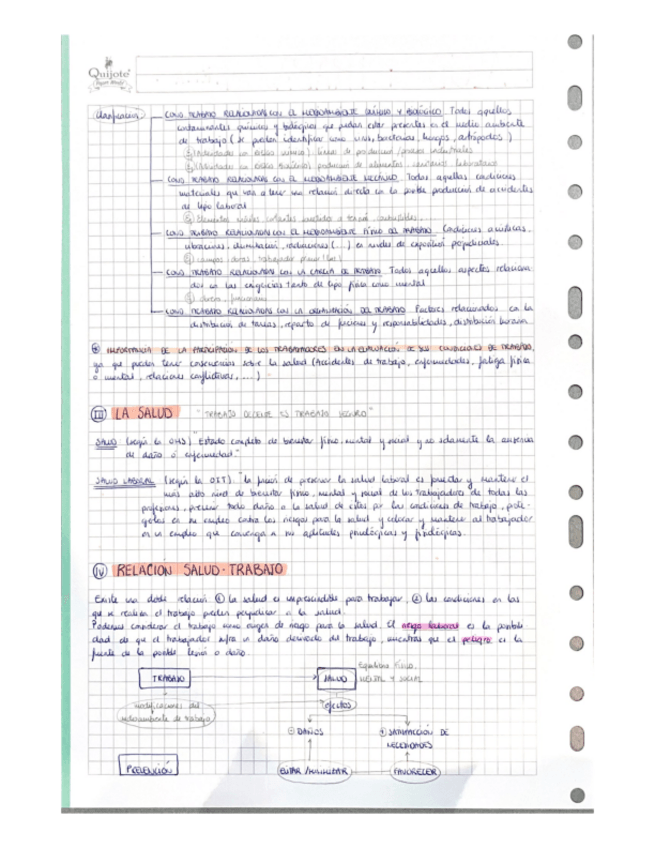 Quijote
Clasificación
COND. TRABAJO RELACIONADAS CON EL MEDIOAMBIENTE QUÍMICO Y BIOLÓGICO Todos aquellos
contaminantes químicos y biológicos que puedan estar presentes en el medio ambiente
de trabajo (se pueden identificar como virus, bacterias, hongos, artrópodos)
COND. TRABAJO RELACIONADAS CON EL MEDIOAMBIENTE MECÁNICO. Todas aquellas condiciones
materiales que van a tener una relación directa con la posible producción de accidentes
de tipo laboral
COND. TRABAJO RELACIONADAS CON EL MEDIOAMBIENTE FÍSICO DEL TRABAJO Condiciones acústicas,
vibraciones, iluminación, radiaciones (...) en niveles de exposición
COND. TRABAJO RELACIONADAS CON LA CARGA DE TRABAJO Todos aquellos aspectos relaciona
dos con las exigencias tanto de tipo físico como mental
COND. TRABAJO RELACIONADAS CON LA ORGANIZACIÓN DEL TRABAJO Factores relacionados con la
distribución de tareas, reparto de funciones y responsabilidades, distribución horaria
IMPORTANCIA DE LA PARTICIPACIÓN DE LOS TRABAJADORES EN LA EVALUACIÓN DE SUS CONDICIONES DE TRABAJO,
ya que pueden tener consecuencias sobre la salud (Accidentes de trabajo, enfermedades, fatiga física
o mental, relaciones conflictivas, ...)
III LA SALUD "TRABAJO DECENTE ES TRABAJO SEGURO"
SALUD (según la OMS) "Estado completo de bienestar físico, mental y social y no solamente la ausencia
de daño o enfermedad"
SALUD LABORAL (según la OIT): "la función de preservar la salud laboral es fomentar y mantener el
más alto nivel de bienestar físico, mental y social de los trabajadores de todas las
profesiones, prevenir todo daño a la salud de estos por las condiciones de trabajo, prote-
gerlos en su empleo contra los riesgos para la salud y colocar y mantener al trabajador
en un empleo que convenga a sus aptitudes psicológicas y fisiológicas.
IV RELACIÓN SALUD-TRABAJO
Existe una doble relación: ① la salud es imprescindible para trabajar, ② las condiciones en las
que se realiza el trabajo pueden perjudicar a la salud.
Podemos considerar el trabajo como origen de riesgo para la salud. El riesgo laboral es la posibili
dad de que el trabajador sufra un daño derivado del trabajo, mientras que el peligro es la
fuente de la posible lesión o daño.
Equilibrio físico,
TRABAJO
SALUD
MENTAL Y SOCIAL
modificaciones del
medioambiente de trabajo
Efectos
⊖ DAÑOS
⊕ SATISFACCIÓN DE
NECESIDADES
PREVENCIÓN
EVITAR / MINIMIZAR
FAVORECER